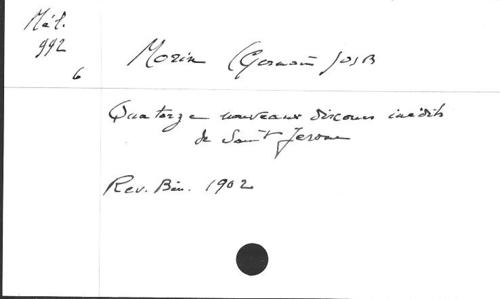 Mél.
992
6
Morin (Germain) OSB
Quatorze nouveaux discours inédits
de Saint Jerome
Rev. Bén. 1902